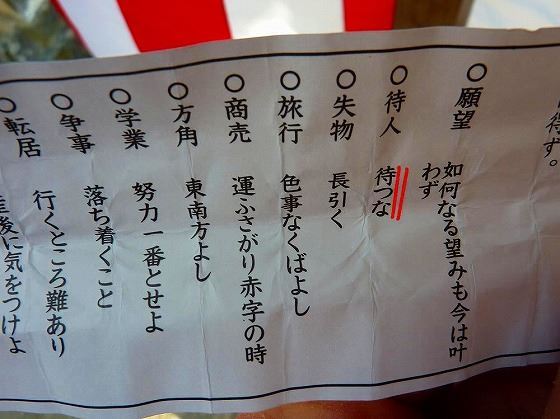 得ず。
○願望 如何なる望みも今は叶
わず
○待人 待つな
○失物 長引く
○旅行 色事なくばよし
○商売 運ふさがり赤字の時
○方角 東南方よし
○学業 努力一番とせよ
○争事 落ち着くこと
○転居 行くところ難あり
産後に気をつけよ